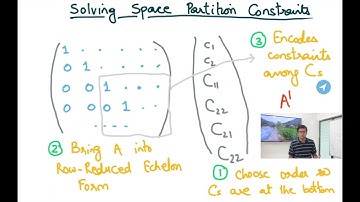 Solving Space Partition Constraints
1 . . . . .
0 1 . . . .
0 0 1 . . .
0 0 0 1 . .
- - - -
C1
C2
C11
C22
C21
C22
③ Encodes
constraints
among Cs
A'
② Bring A into
Row-Reduced Echelon
Form
① Choose order so
Cs are at the bottom